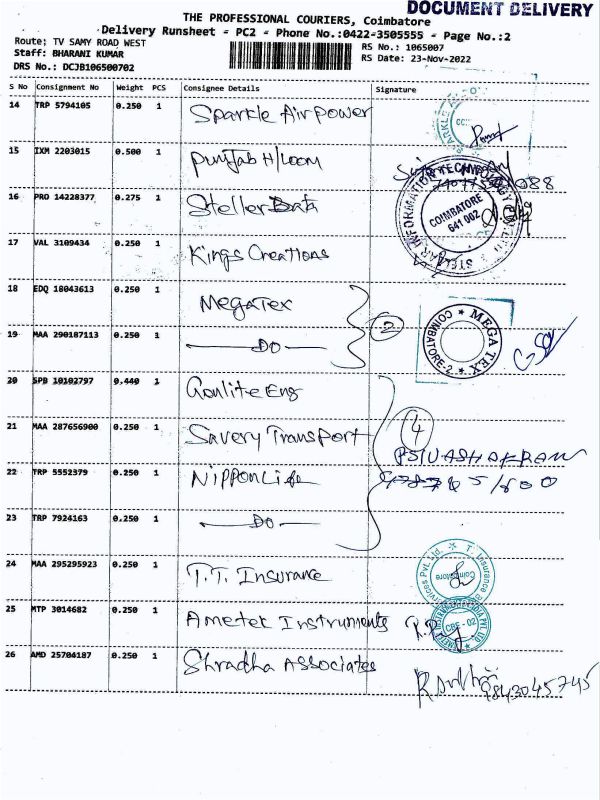 DOCUMENT DELIVERY
THE PROFESSIONAL COURIERS, Coimbatore
Delivery Runsheet - PC2 - Phone No.:0422-3505555 - Page No.:2
Route; TV SAMY ROAD WEST
RS No.: 1065007
Staff: BHARANI KUMAR
RS Date: 23-Nov-2022
DRS No.: DCJB106500702
S No Consignment No Weight PCS Consignee Details Signature
14 TRP 5794105 0.250 1 Sparkle Airpower
15 IXM 2203015 0.500 1 Punjab H/Loom
16 PRO 14228377 0.275 1 Steller Data
STELLAR INFORMATION TECHNOLOGY
COIMBATORE
641 002
17 VAL 3109434 0.250 1 Kings Creations
18 EDQ 18043613 0.250 1 MegaTex
2
MEGA TEX
COIMBATORE-2
19 MAA 290187113 0.250 1 Do
20 SPB 10102797 0.440 1 Gonlite Eng
21 MAA 287656900 0.250 1 Savery Transport
4
22 TRP 5552379 0.250 1 Nippon Life
23 TRP 7924163 0.250 1 Do
24 MAA 295295923 0.250 1 T.T. Insurance
25 MTP 3014682 0.250 1 Ametek Instruments
CBE - 02
26 AMD 25704187 0.250 1 Shradha Associates
9843045745